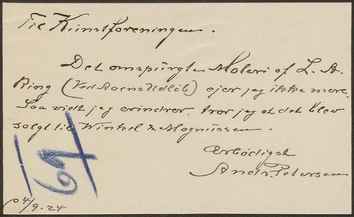 Til Kunstforeningen.
Det omspurgte Maleri af L. A.
Ring (Ved Roenskdlib) ejer jeg ikke mere.
Saa vidt jeg erindrer, tror jeg at det blev
solgt til Winkel & Magnussen.
Ærbødigst
Andr. Petersen
24/9-24